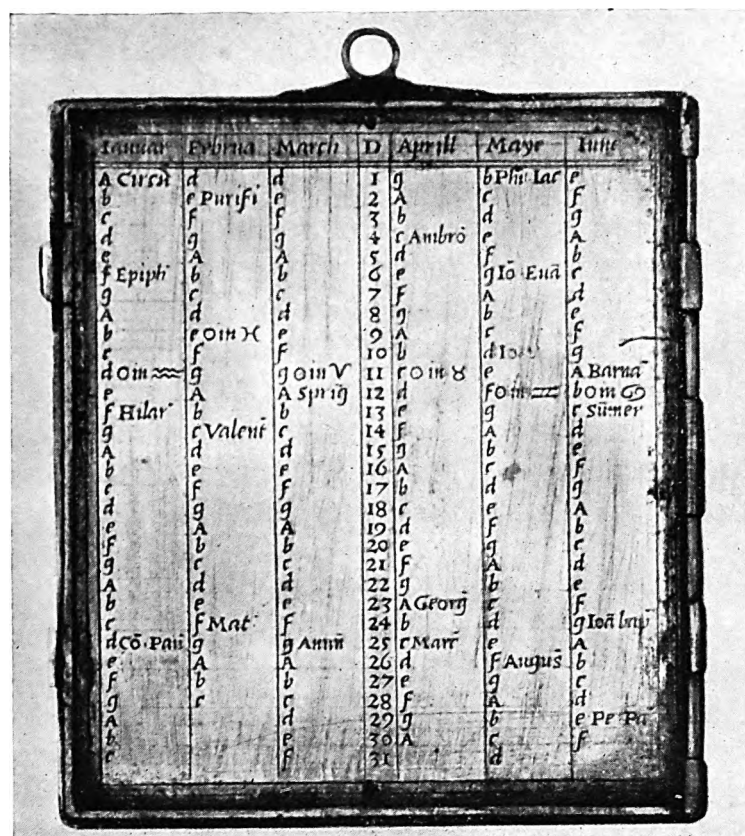 Ianuar Februa March D Aprill Maye Iune
A Circū d d 1 g b Phi Iac e
b e Purifi e 2 A c f
c f f 3 b d g
d g g 4 c Ambrō e A
e A A 5 d f b
f Epiph b b 6 e g Iō Euā c
g c c 7 f A d
A d d 8 g b e
b e ☉ in ♓ e 9 A c f
c f f 10 b d g
d ☉ in ♒ g g ☉ in ♈ 11 c ☉ in ♉ e A Barnā
e A A Spriḡ 12 d f ☉ in ♊ b ☉ in ♋
f Hilar b b 13 e g c Sūmer
g c Valent c 14 f A d
A d d 15 g b e
b e e 16 A c f
c f f 17 b d g
d g g 18 c e A
e A A 19 d f b
f b b 20 e g c
g c c 21 f A d
A d d 22 g b e
b e e 23 A Georḡ c f
c f Mat f 24 b d g Ioā bap
d Cō·Pau g g Annū 25 c Marc e A
e A A 26 d f Augus̄ b
f b b 27 e g c
g c c 28 f A d
A d 29 g b e Pe Pa
b e 30 A c f
c f 31 d